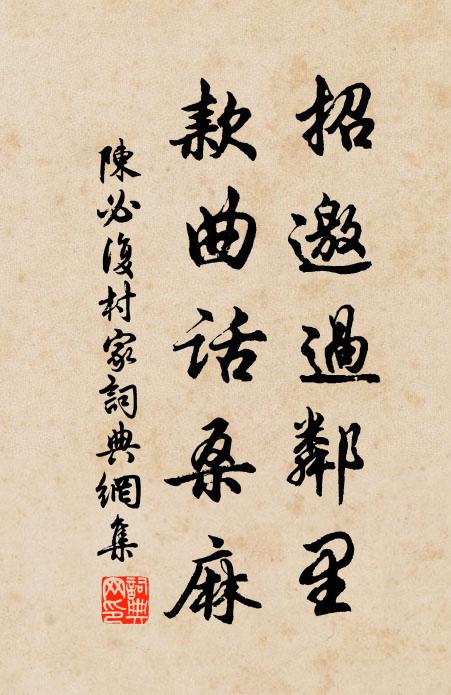 招邀過鄰里
款曲話桑麻
陳必復村家詞典網集
詞典網印